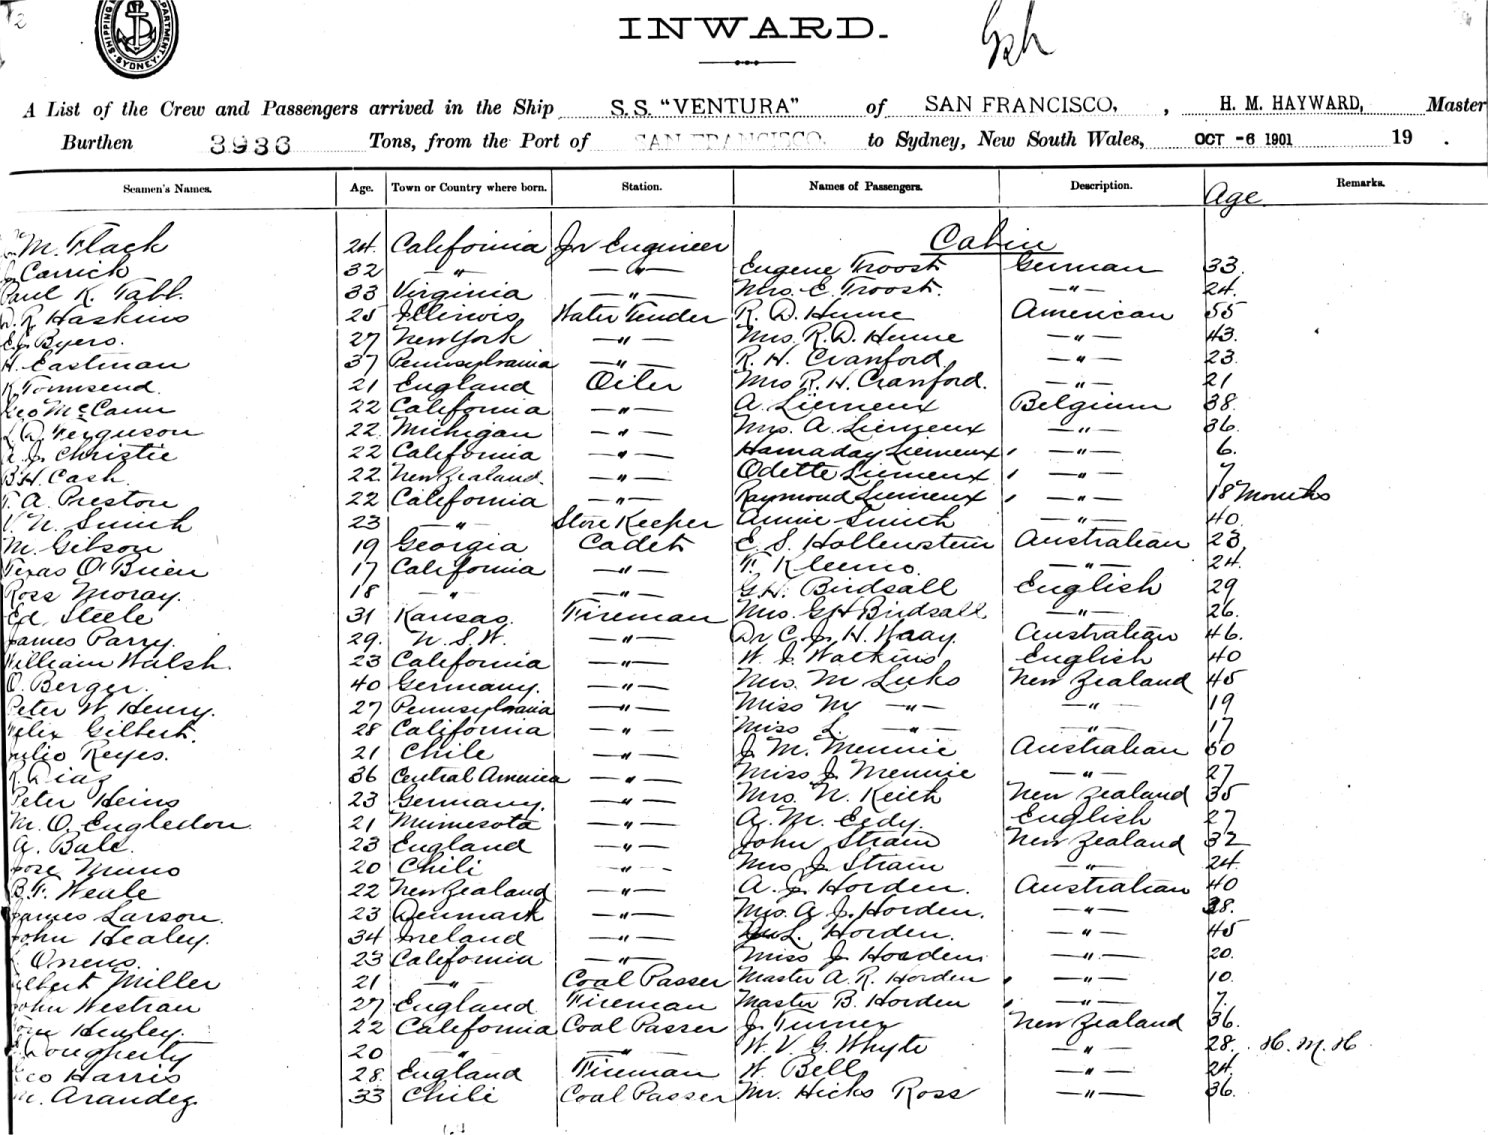 2
SHIPPING DEPARTMENT. SYDNEY.
INWARD.
A List of the Crew and Passengers arrived in the Ship S.S. "VENTURA" of SAN FRANCISCO, , H. M. HAYWARD, Master
Burthen 3936 Tons, from the Port of SAN FRANCISCO. to Sydney, New South Wales, OCT -6 1901 19 .
Seamen's Names. Age. Town or Country where born. Station. Names of Passengers. Description. Age Remarks.
M. Flack 24. California Jr Engineer Cabin
Carrick 32 —"— —"— Eugene Troost German 33.
Paul K. Tabb. 33 Virginia —"— Mrs. E. Troost. —"— 24.
Haskins 25 Illinois Water Tender R. D. Hume American 55
Byers. 27 New York —"— Mrs. R. D. Hume —"— 43.
H. Eastman 37 Pennsylvania —"— R. H. Cranford. —"— 23.
R. Townsend. 21 England Oiler Mrs R. H. Cranford. —"— 21
Geo McCann 22 California —"— A. Liemeux Belgium 38.
Ferguson 22. Michigan —"— Mrs. A. Liemeux —"— 36.
J. Christie 22 California —"— Hamaday Liemeux —"— 6.
B. H. Cash. 22. New Zealand. —"— Odette Liemeux —"— 7
A. Preston 22 California —"— Raymond Liemeux —"— 18 Months
N. Smith 23 —"— Store Keeper Annie Smith —"— 40.
M. Gibson 19 Georgia Cadet E. S. Hollenstein Australian 23
Texas O'Brien 17 California —"— F. Klemo. —"— 24.
Ross Moray. 18 —"— —"— G. H. Birdsall English 29
Ed. Steele 31 Kansas. Fireman Mrs. G H Birdsall —"— 26.
James Parry. 29. N. S. W. —"— Dr C. J. H. Wray. Australian 46.
William Walsh. 23 California —"— W. J. Watkins English 40
O. Berger. 40 Germany. —"— Mrs. M Luks New Zealand 45
Peter W Henry. 27 Pennsylvania —"— Miss M —"— —"— 19
Felix Gilbert. 28 California —"— Miss L. —"— —"— 17
Julio Reyes. 21 Chile —"— J. M. Mennie Australian 50
R. Diaz 36 Central America —"— Miss J. Mennie —"— 27
Peter Heins 23 Germany. —"— Mrs. N. Keith New Zealand 35
M. O. Engleston 21 Minnesota —"— A. M. Eedy. English 27
A. Bale. 23 England —"— John Strain New Zealand 32
Jose Muno 20 Chili —"— Mrs J. Strain —"— 24.
B. F. Weale 22 New Zealand —"— A. J. Horden. Australian 40
James Larson. 23 Denmark —"— Mrs. A. J. Horden. —"— 38.
John Healey. 34 Ireland —"— L. Horden. —"— 45
Owens. 23 California —"— Miss J. Hoarden. —"— 20.
Albert Miller 21 —"— Coal Passer Master A. R. Horden —"— 10.
John Westran 27 England Fireman Master B. Horden —"— 7.
Henley. 22 California Coal Passer J. Turner New Zealand 36.
Dougherty 20 —"— —"— W. V. G. Whyte —"— 28. H. M. H.
Geo Harris 28 England Fireman W. Bell —"— 24.
M. Arandez 33 Chili Coal Passer Mr. Hicks Ross —"— 36.